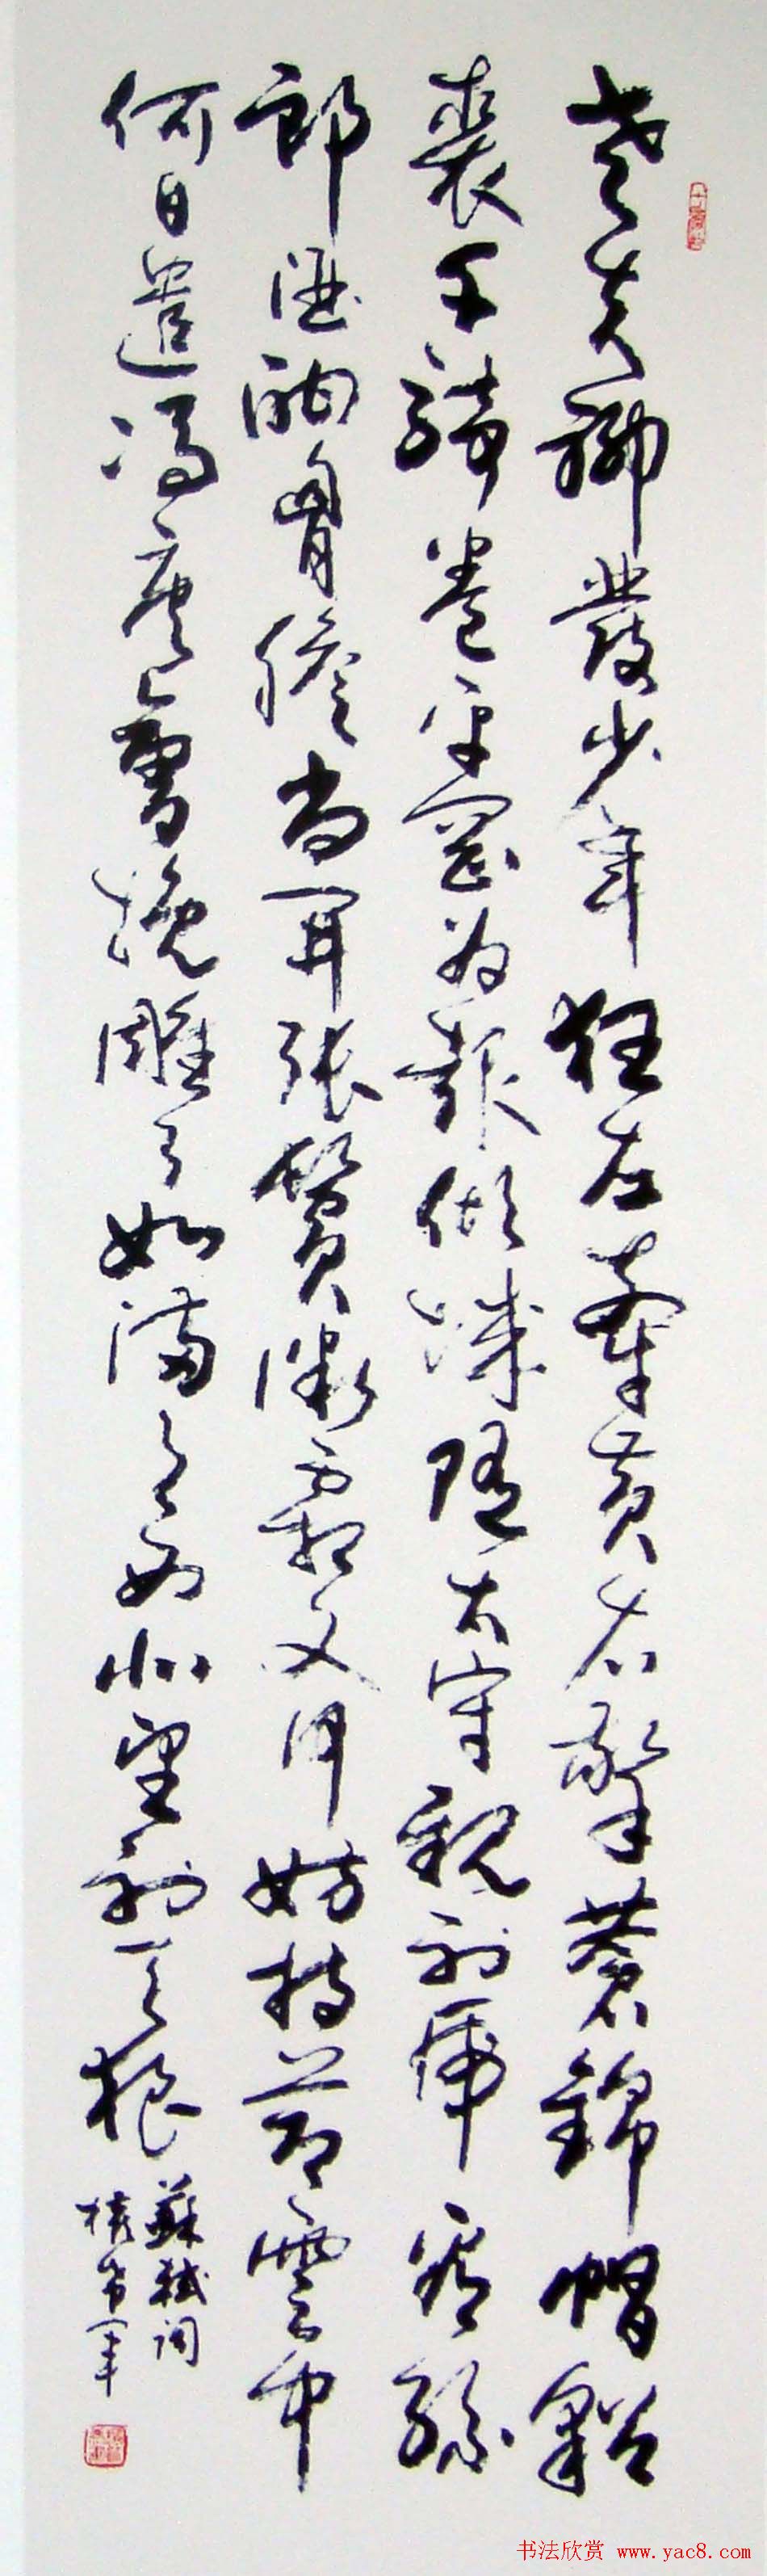 老夫聊發少年狂左牽黃右擎蒼錦帽貂
裘千騎卷平岡為報傾城隨太守親射虎看孫
郎酒酣胷膽尚開張鬢微霜又何妨持節雲中
何日遣馮唐會挽雕弓如滿月西北望射天狼
蘇軾詞
書法欣赏 www.yac8.com